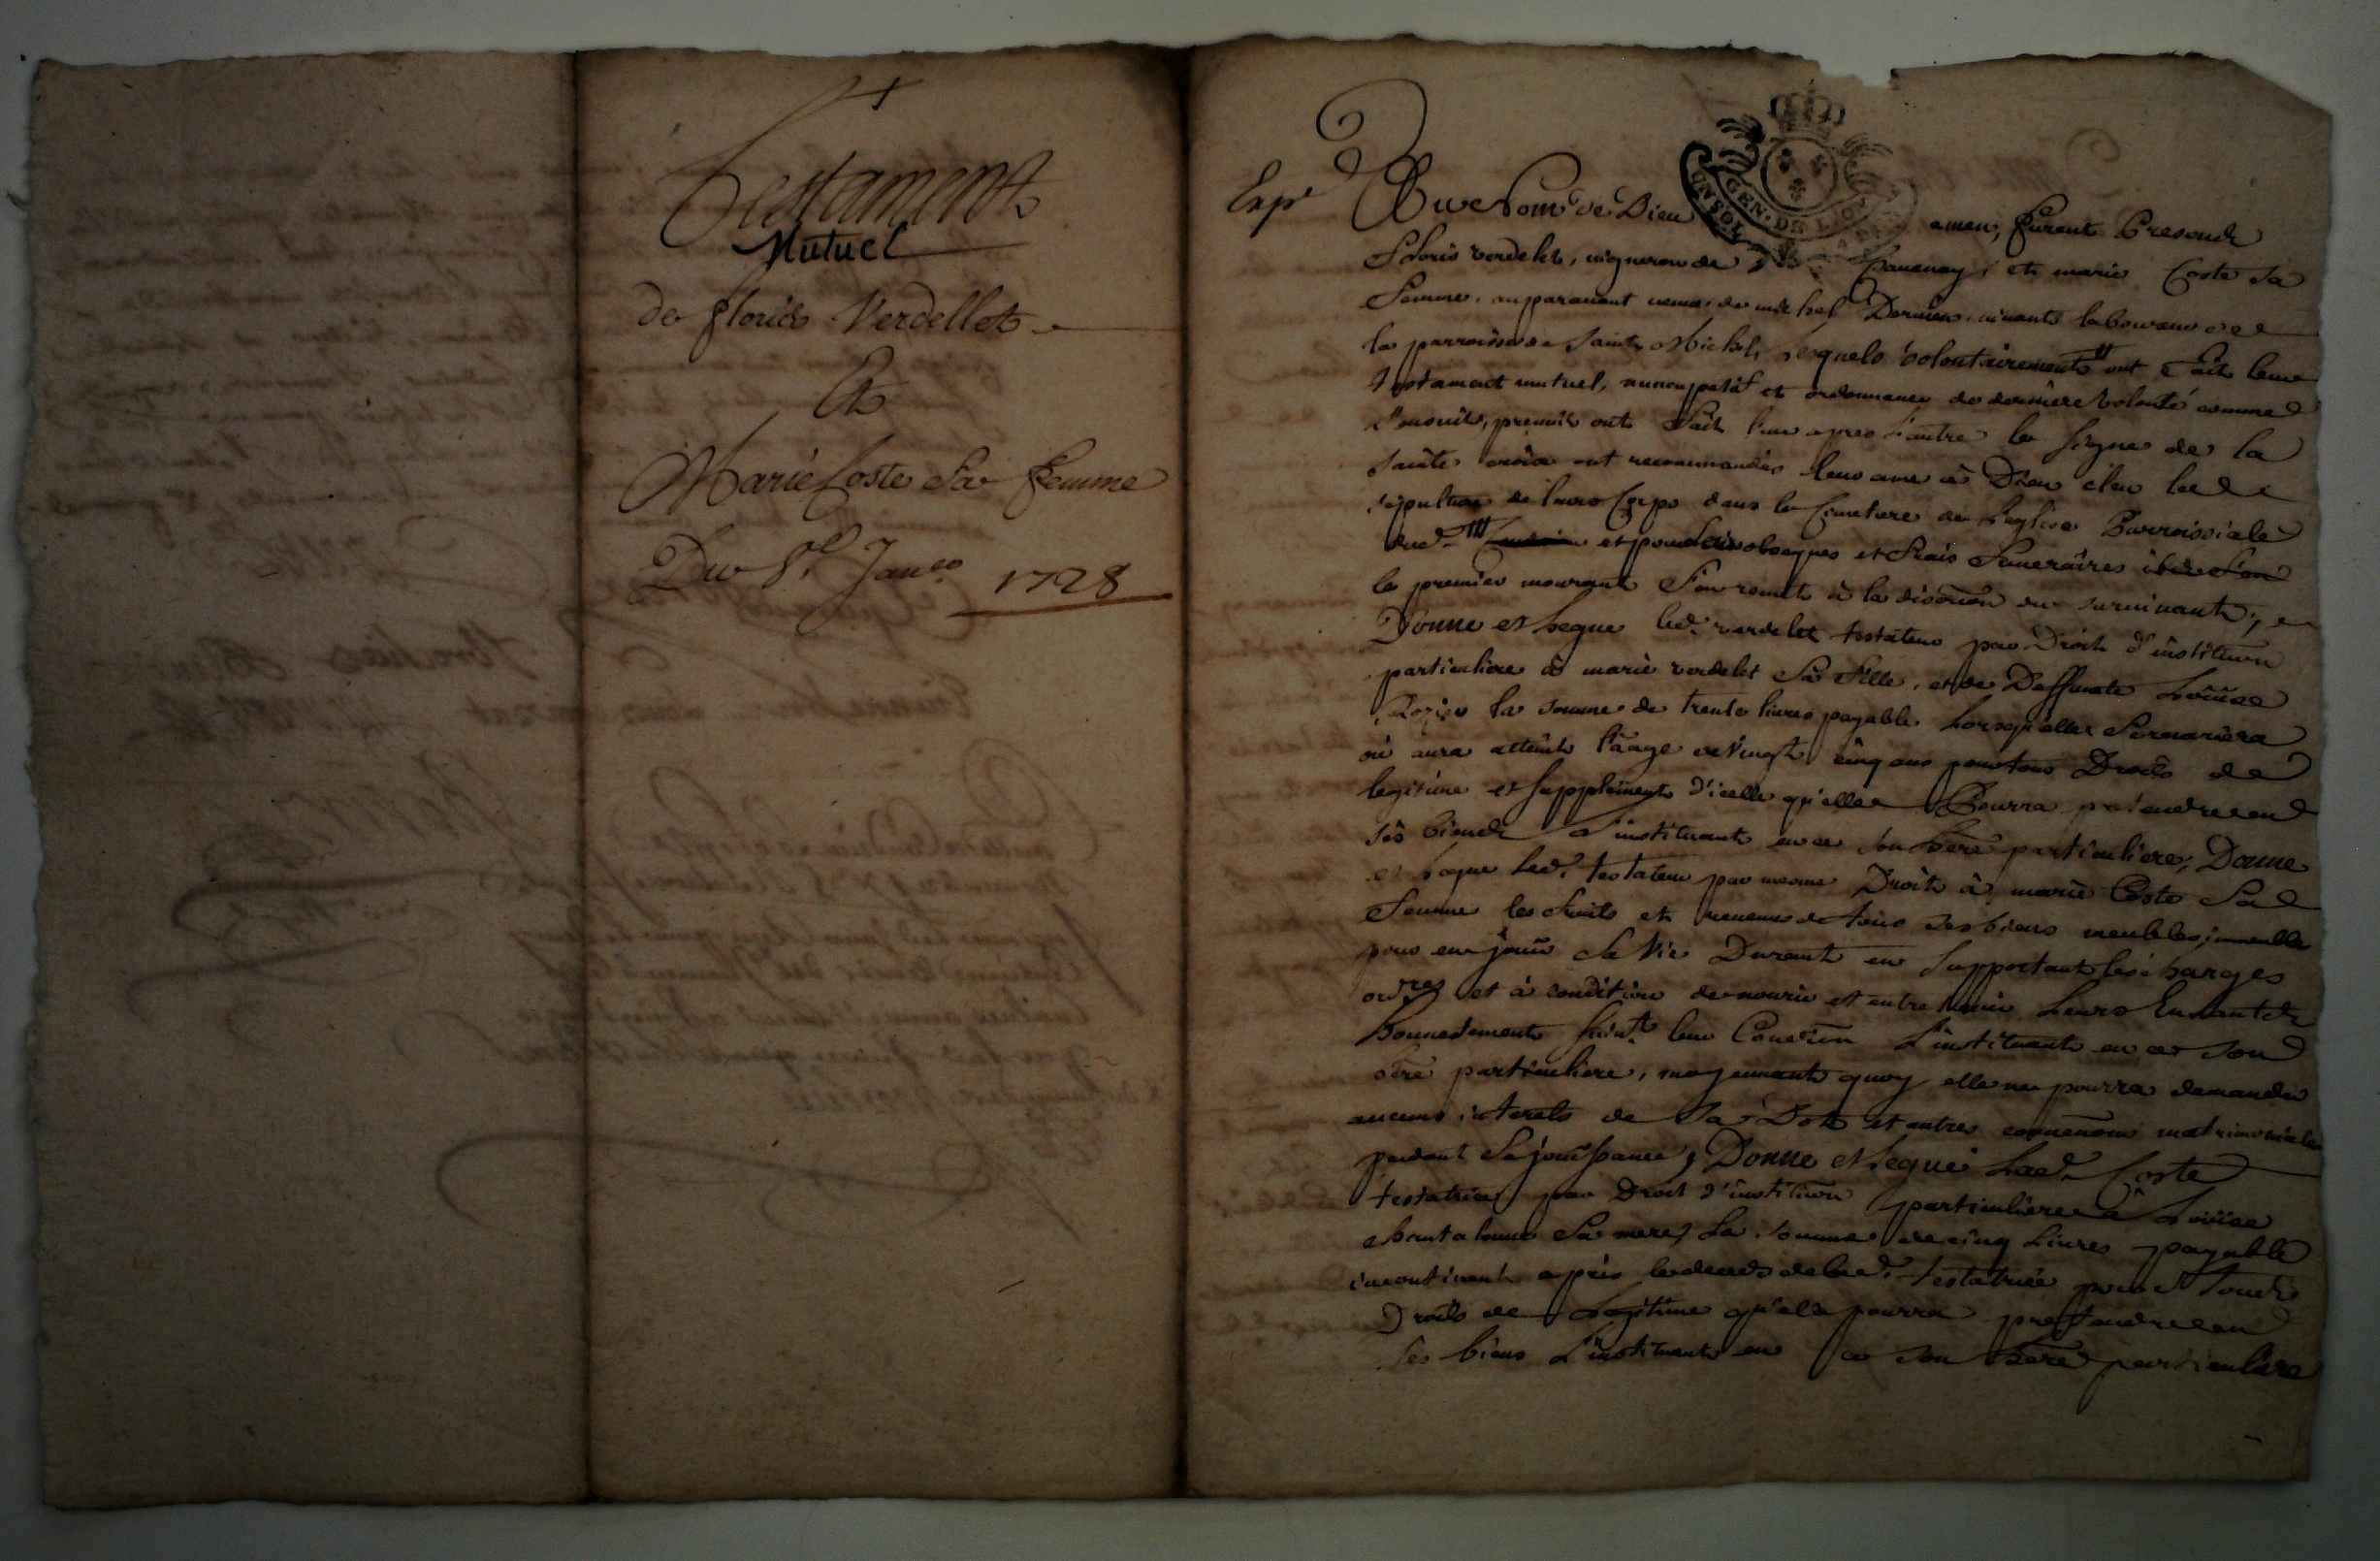 Testament
Mutuel
de floris Verdellet
Et
Marie Coste Sa femme
Du 8e Janer 1728
Expé
Au Nom de Dieu amen, furent Presends
GEN. DE L
floris verdelet, vigneron de et marie Coste sa
femme, auparavant vesve de michel Dernier vivant laboureur de
la parroisse de saint Michel, lesquels volontairement ont fait leur
testament mutuel, nuncupatif et ordonnance de derniere volonté comme
s'ensuit, premier ont fait l'un apres l'autre le signe de la
sainte croix ont recommandés leur ame à Dieu eleu la
sepulture de leurs Corps dans le Cimetiere de l'eglise Parroissiale
dud. et pour leurs obseques et frais funeraires
le premier mourant s'en remet à la discrétion du survivant,
Donne et legue led. verdelet testateur par Droit d'institution
particuliere à marie verdelet sa fille, et de Deffunte Loüise
Rozier la somme de trente livres payable lorsqu'elle se mariera
où aura atteint l'aage de vingt cinq ans pour tous Droits de
legitime et supplément d'icelle qu'elle Pourra pretendre en
ses biends L'instituant en ce son here particuliere, Donne
et legue led. testateur par mesme Droit à marie Coste sa
femme les fruits et revenus de tous ses biens meubles, immeuble
pour en jouir sa vie Durant en supportant les charges
ordres et à condition de nourir et entretenir leurs Enfantds
honnestement suivt. leur Condition L'instituant en ce son
here particuliere, moyennant quoy elle ne pourra demander
aucuns interets de sa Dot et autres convenions matrimoniales
pendant sa jouissance, Donne et legue lad. Coste
testatrice par Droit d'institution particuliere à Loüise
sa mere, la somme de cinq livres payable
incontinent après le deceds de lad. testatrice pour tous
Droits de Legitime qu'elle pourra pretendre en
ses biens L'instituant en ce son here particuliere